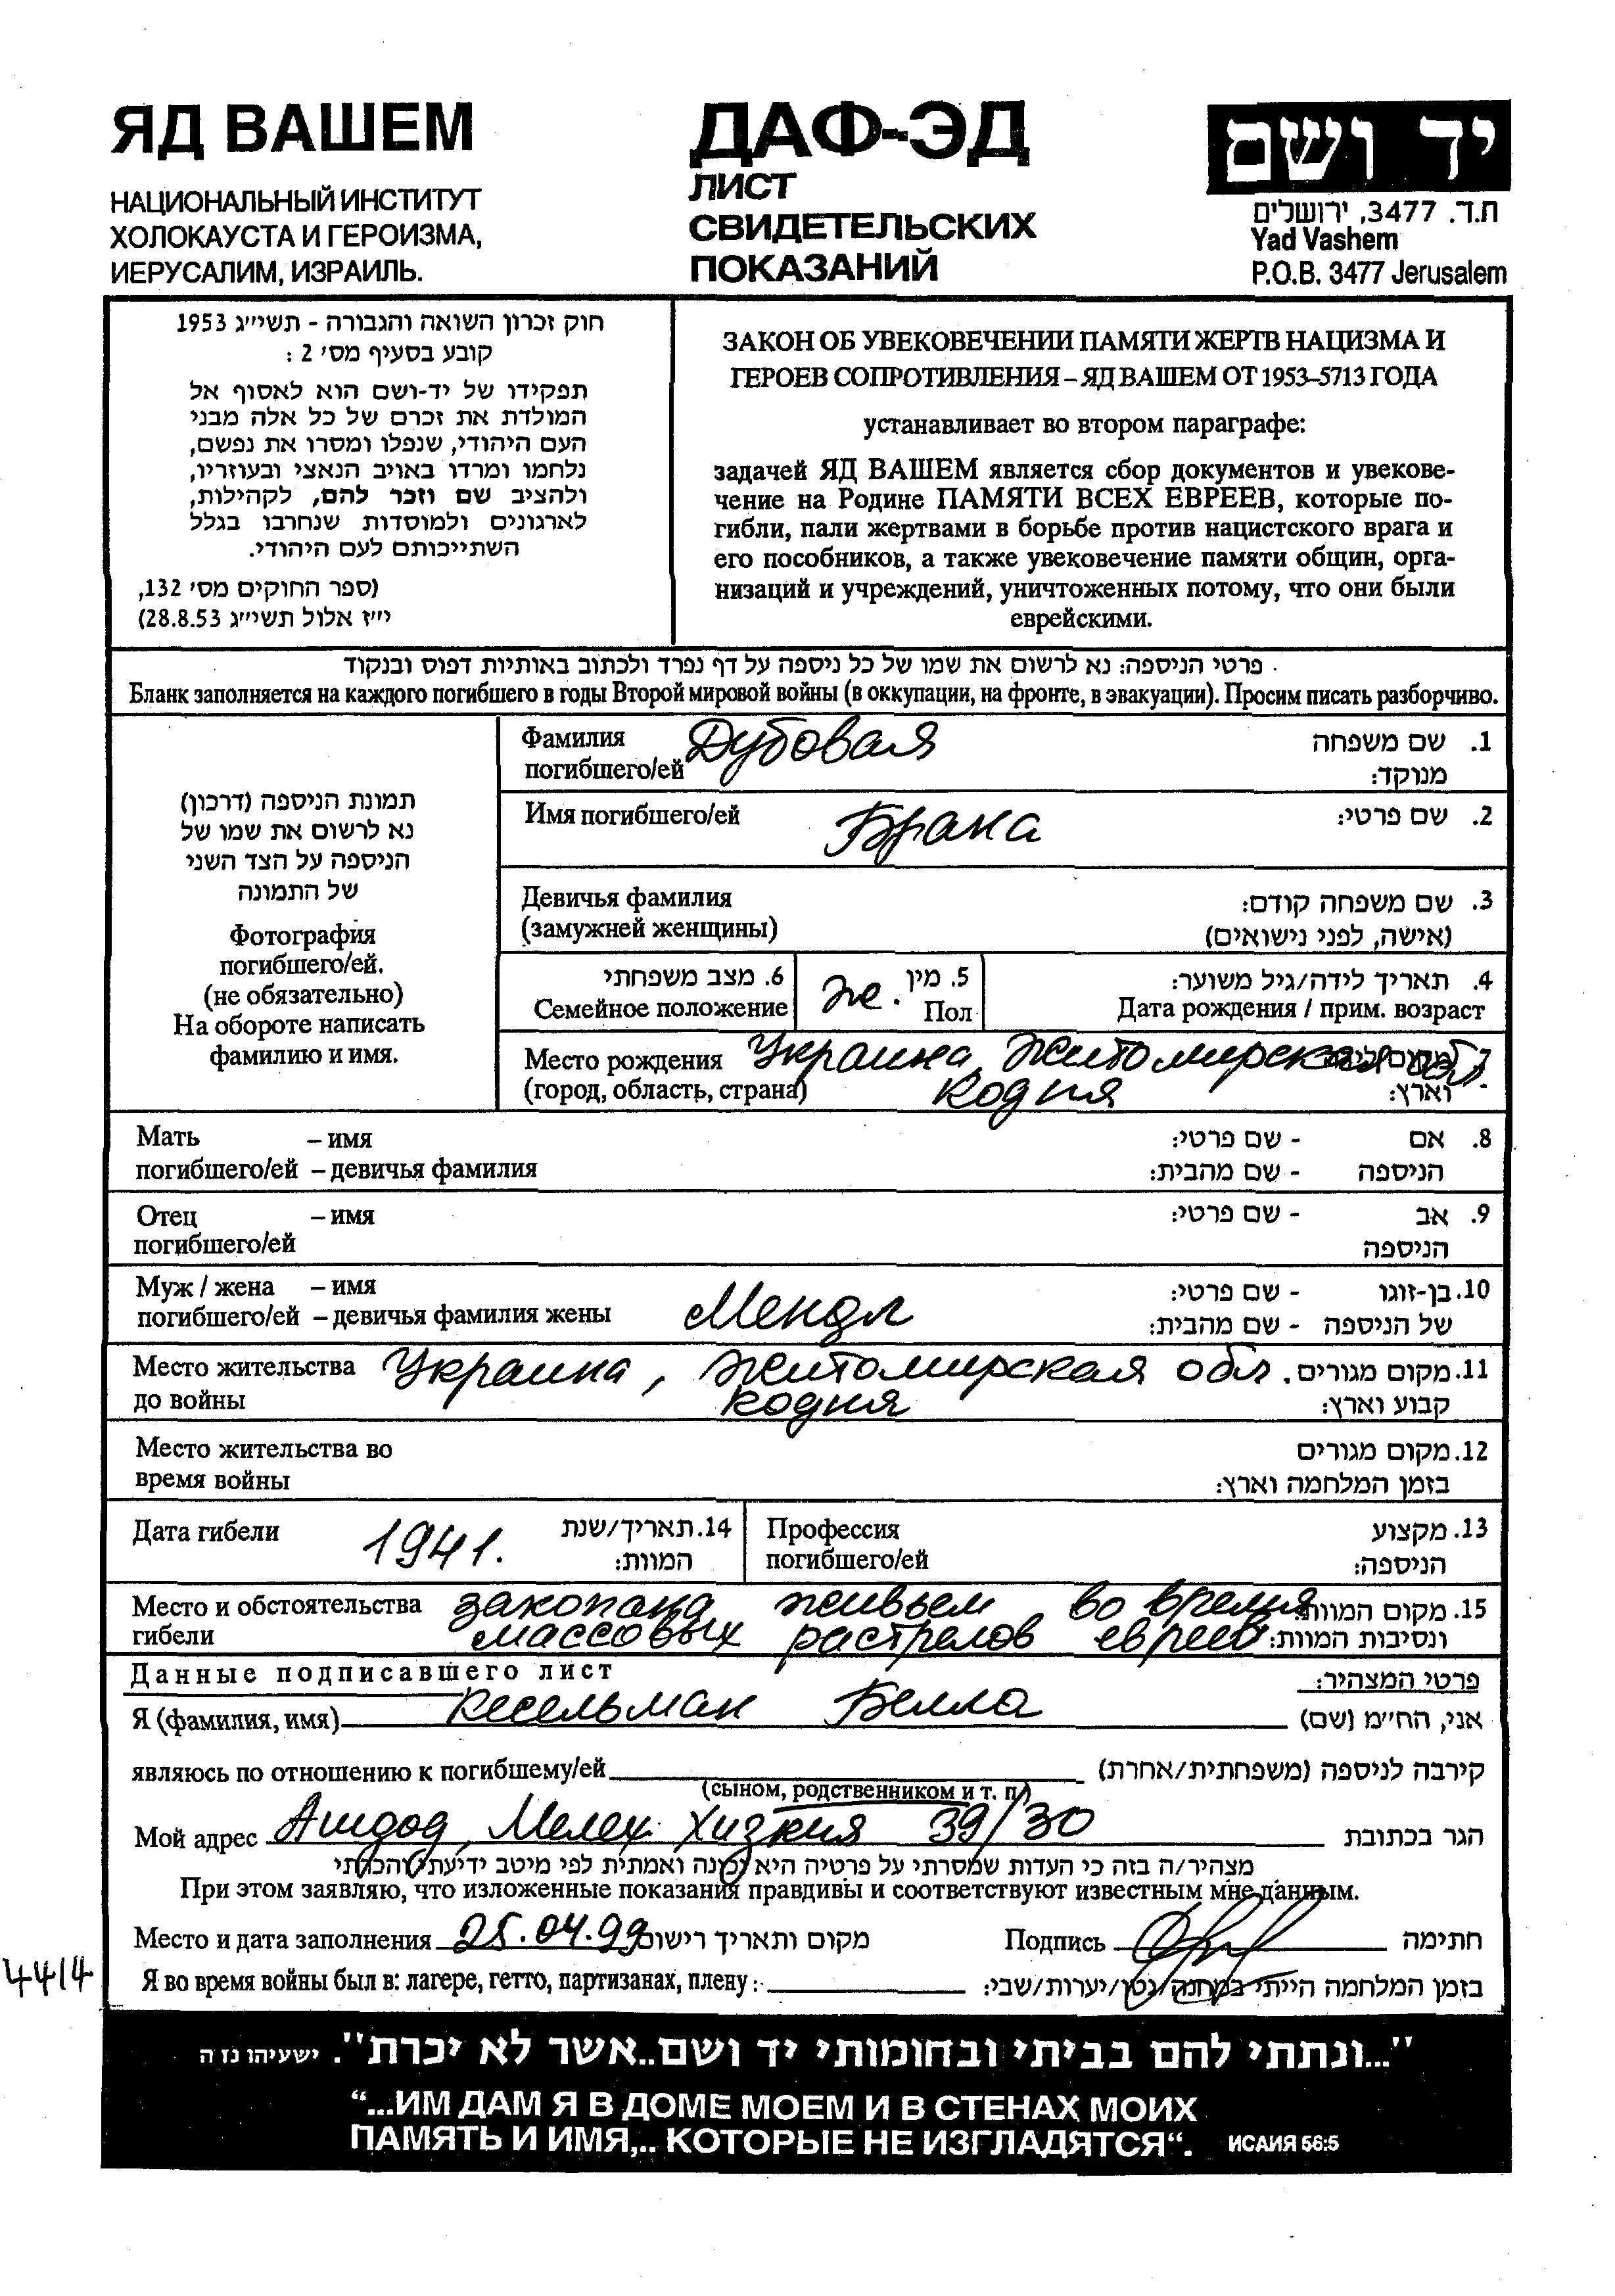 ЯД ВАШЕМ
НАЦИОНАЛЬНЫЙ ИНСТИТУТ
ХОЛОКАУСТА И ГЕРОИЗМА,
ИЕРУСАЛИМ, ИЗРАИЛЬ.
ДАФ-ЭД
ЛИСТ
СВИДЕТЕЛЬСКИХ
ПОКАЗАНИЙ
יד ושם
ת.ד. 3477, ירושלים
Yad Vashem
P.O.B. 3477 Jerusalem
חוק זכרון השואה והגבורה - תשי״ג 1953
קובע בסעיף מס׳ 2 :
תפקידו של יד-ושם הוא לאסוף אל
המולדת את זכרם של כל אלה מבני
העם היהודי, שנפלו ומסרו את נפשם,
נלחמו ומרדו באויב הנאצי ובעוזריו,
ולהציב שם וזכר להם, לקהילות,
לארגונים ולמוסדות שנחרבו בגלל
השתייכותם לעם היהודי.
(ספר החוקים מס׳ 132,
י״ז אלול תשי״ג 28.8.53)
ЗАКОН ОБ УВЕКОВЕЧЕНИИ ПАМЯТИ ЖЕРТВ НАЦИЗМА И
ГЕРОЕВ СОПРОТИВЛЕНИЯ – ЯД ВАШЕМ ОТ 1953–5713 ГОДА
устанавливает во втором параграфе:
задачей ЯД ВАШЕМ является сбор документов и увекове-
чение на Родине ПАМЯТИ ВСЕХ ЕВРЕЕВ, которые по-
гибли, пали жертвами в борьбе против нацистского врага и
его пособников, а также увековечение памяти общин, орга-
низаций и учреждений, уничтоженных потому, что они были
еврейскими.
פרטי הניספה: נא לרשום את שמו של כל ניספה על דף נפרד ולכתוב באותיות דפוס ובנקוד
Бланк заполняется на каждого погибшего в годы Второй мировой войны (в оккупации, на фронте, в эвакуации). Просим писать разборчиво.
תמונת הניספה (דרכון)
נא לרשום את שמו של
הניספה על הצד השני
של התמונה
Фотография
погибшего/ей.
(не обязательно)
На обороте написать
фамилию и имя.
Фамилия Дубовая 1. שם משפחה
погибшего/ей מנוקד:
Имя погибшего/ей Брана 2. שם פרטי:
Девичья фамилия 3. שם משפחה קודם:
(замужней женщины) (אישה, לפני נישואים)
6. מצב משפחתי 5. מין 4. תאריך לידה/גיל משוער:
Семейное положение же. Пол Дата рождения / прим. возраст
Место рождения Украина, Житомирская обл 7
(город, область, страна) Кодня וארץ:
Мать – имя 8. אם - שם פרטי:
погибшего/ей – девичья фамилия הניספה - שם מהבית:
Отец – имя 9. אב - שם פרטי:
погибшего/ей הניספה
Муж / жена – имя 10. בן-זוגו - שם פרטי:
погибшего/ей – девичья фамилия жены Мендл של הניספה - שם מהבית:
Место жительства Украина, Житомирская обл. 11. מקום מגורים
до войны Кодня קבוע וארץ:
Место жительства во 12. מקום מגורים
время войны בזמן המלחמה וארץ:
Дата гибели 1941. 14. תאריך/שנת המוות:
Профессия 13. מקצוע
погибшего/ей הניספה:
Место и обстоятельства закопана живьем во время 15. מקום המוות
гибели массовых растрелов евреев ונסיבות המוות:
Данные подписавшего лист פרטי המצהיר:
Я (фамилия, имя) Кесельман Белла אני, הח״מ (שם)
являюсь по отношению к погибшему/ей קירבה לניספה (משפחתית/אחרת)
(сыном, родственником и т. п.)
Мой адрес Ашдод, Мелех Хизкия 39/30 הגר בכתובת
מצהיר/ה בזה כי העדות שמסרתי על פרטיה היא נכונה ואמתית לפי מיטב ידיעתי והכרתי
При этом заявляю, что изложенные показания правдивы и соответствуют известным мне данным.
Место и дата заполнения 25.04.99 מקום ותאריך רישום Подпись חתימה
Я во время войны был в: лагере, гетто, партизанах, плену: בזמן המלחמה הייתי במחנה/גטו/יערות/שבי:
4414
"...ונתתי להם בביתי ובחומותי יד ושם..אשר לא יכרת". ישעיהו נו ה
“...ИМ ДАМ Я В ДОМЕ МОЕМ И В СТЕНАХ МОИХ
ПАМЯТЬ И ИМЯ,.. КОТОРЫЕ НЕ ИЗГЛАДЯТСЯ“. ИСАИЯ 56:5